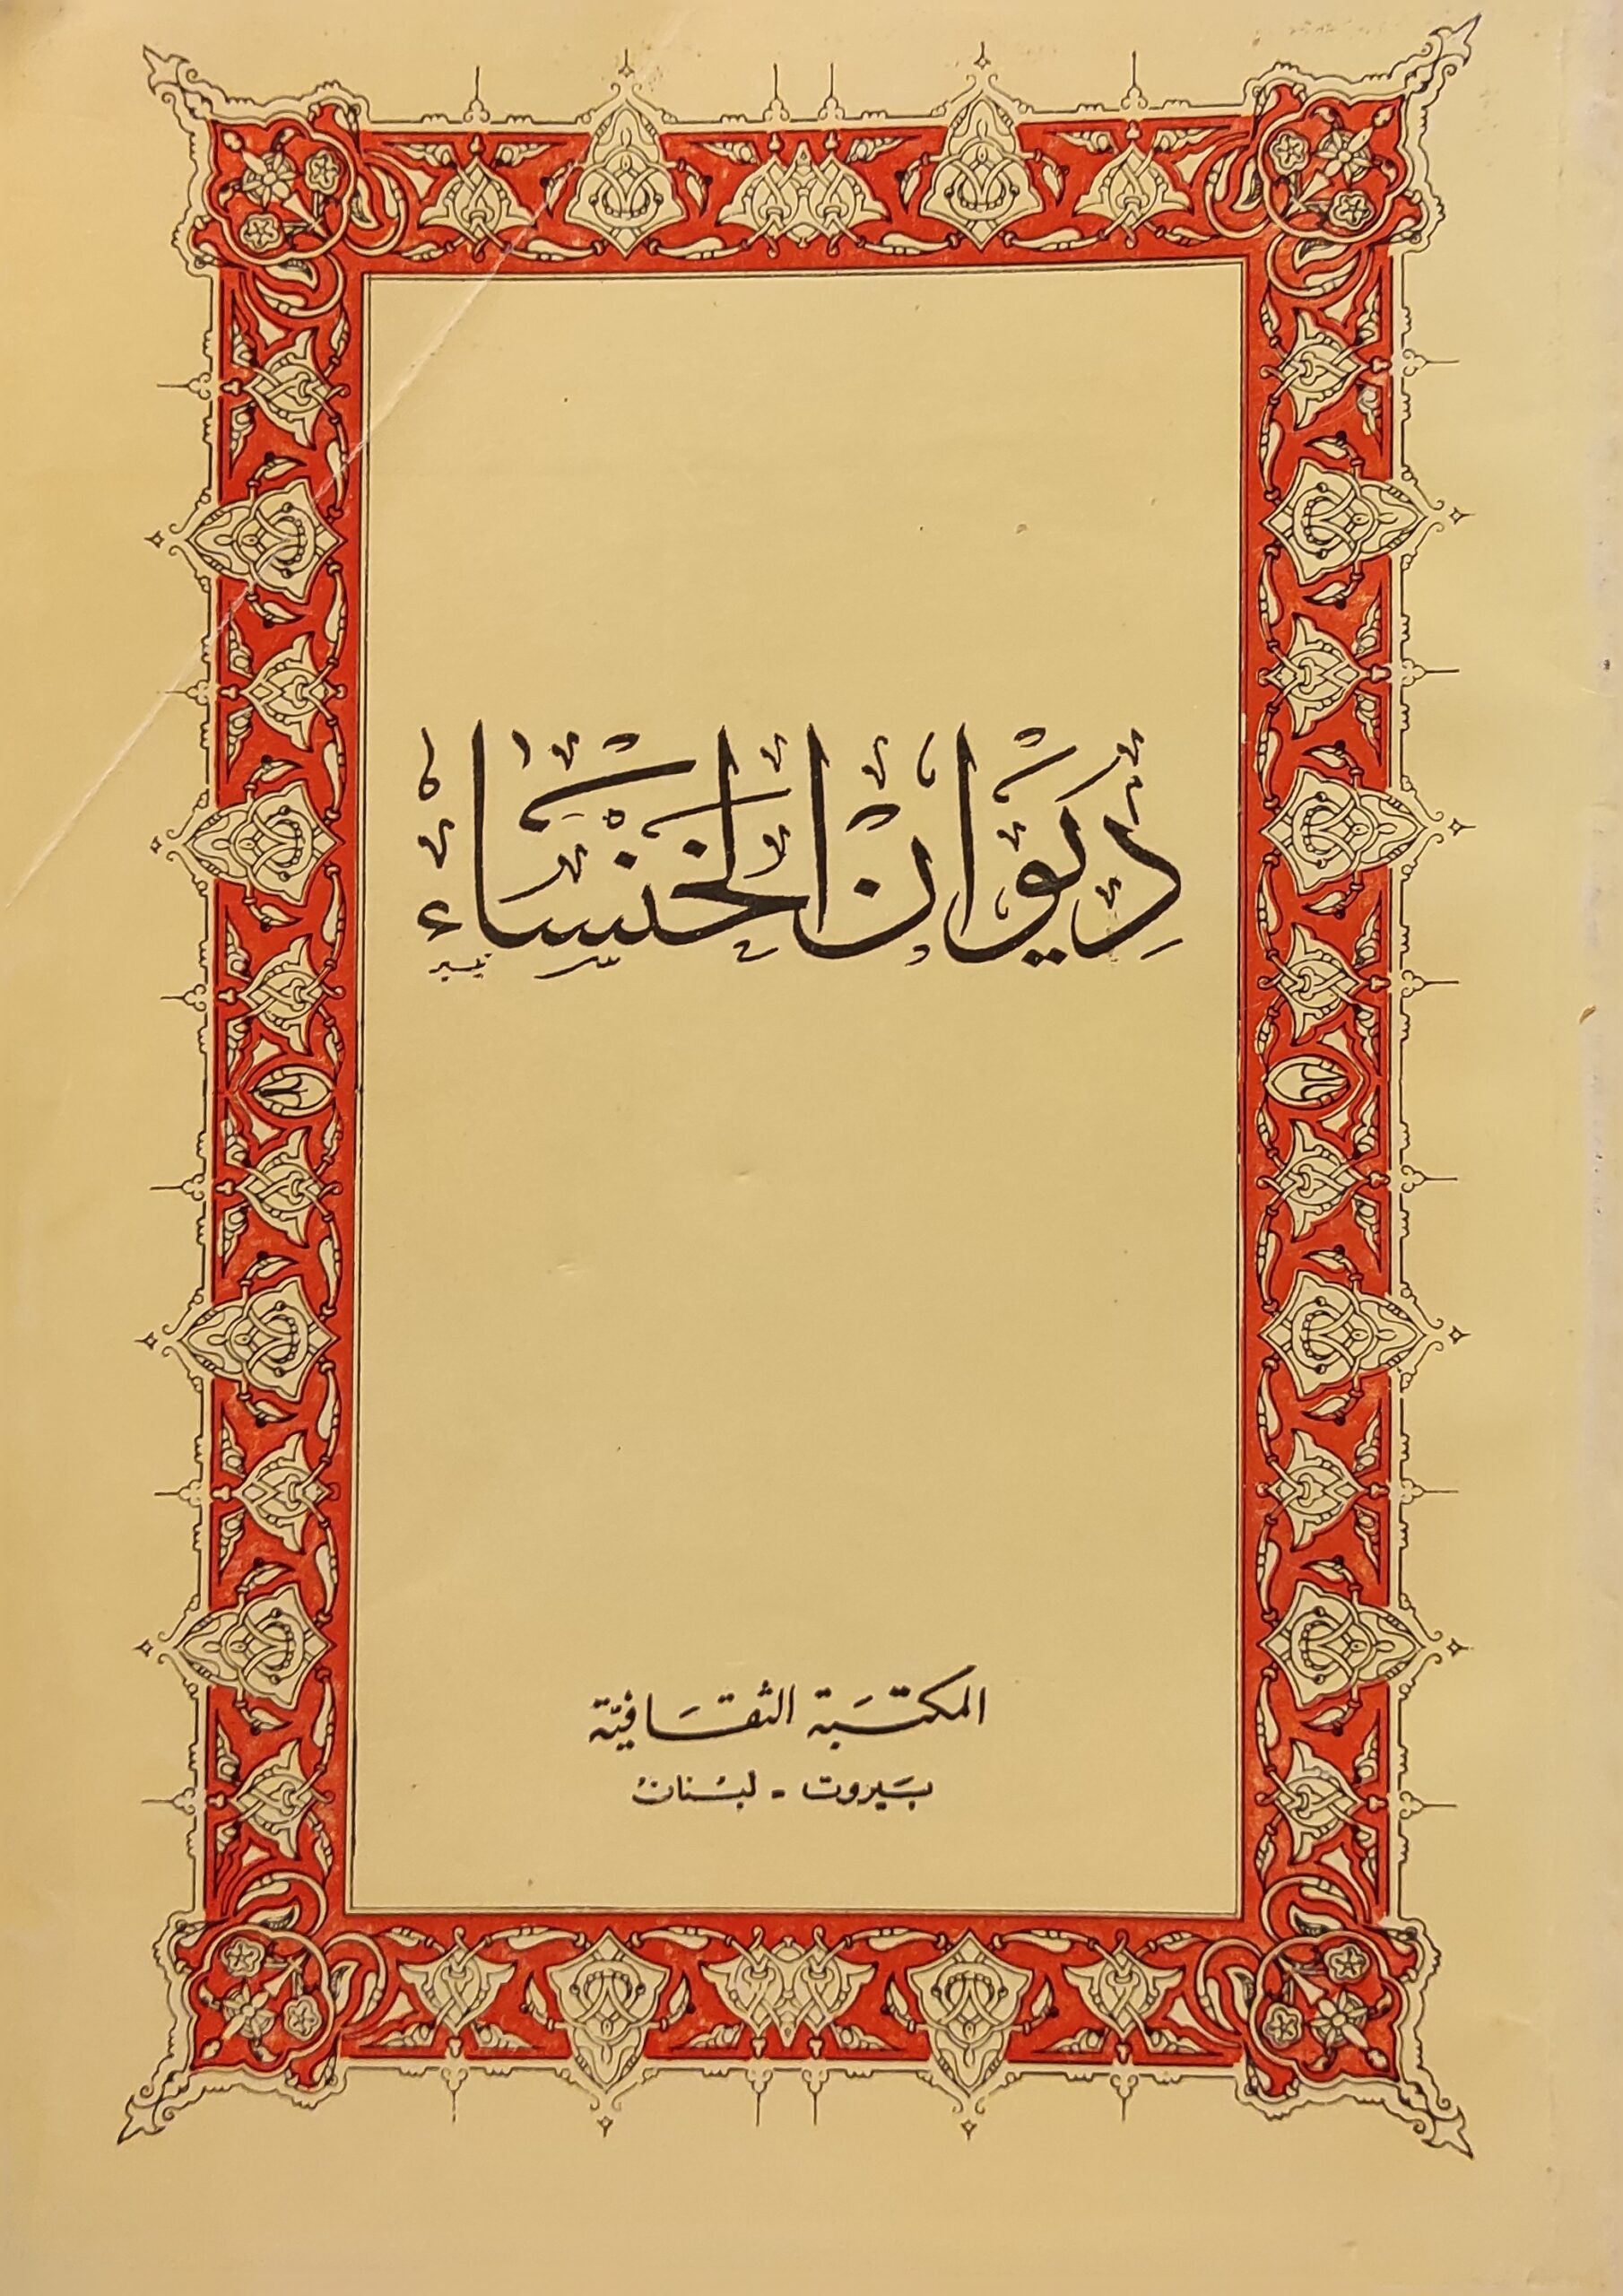 دِيوَان الخَنْسَاء
المكتَبة الثقَافيّة
بَيروت - لبْنان